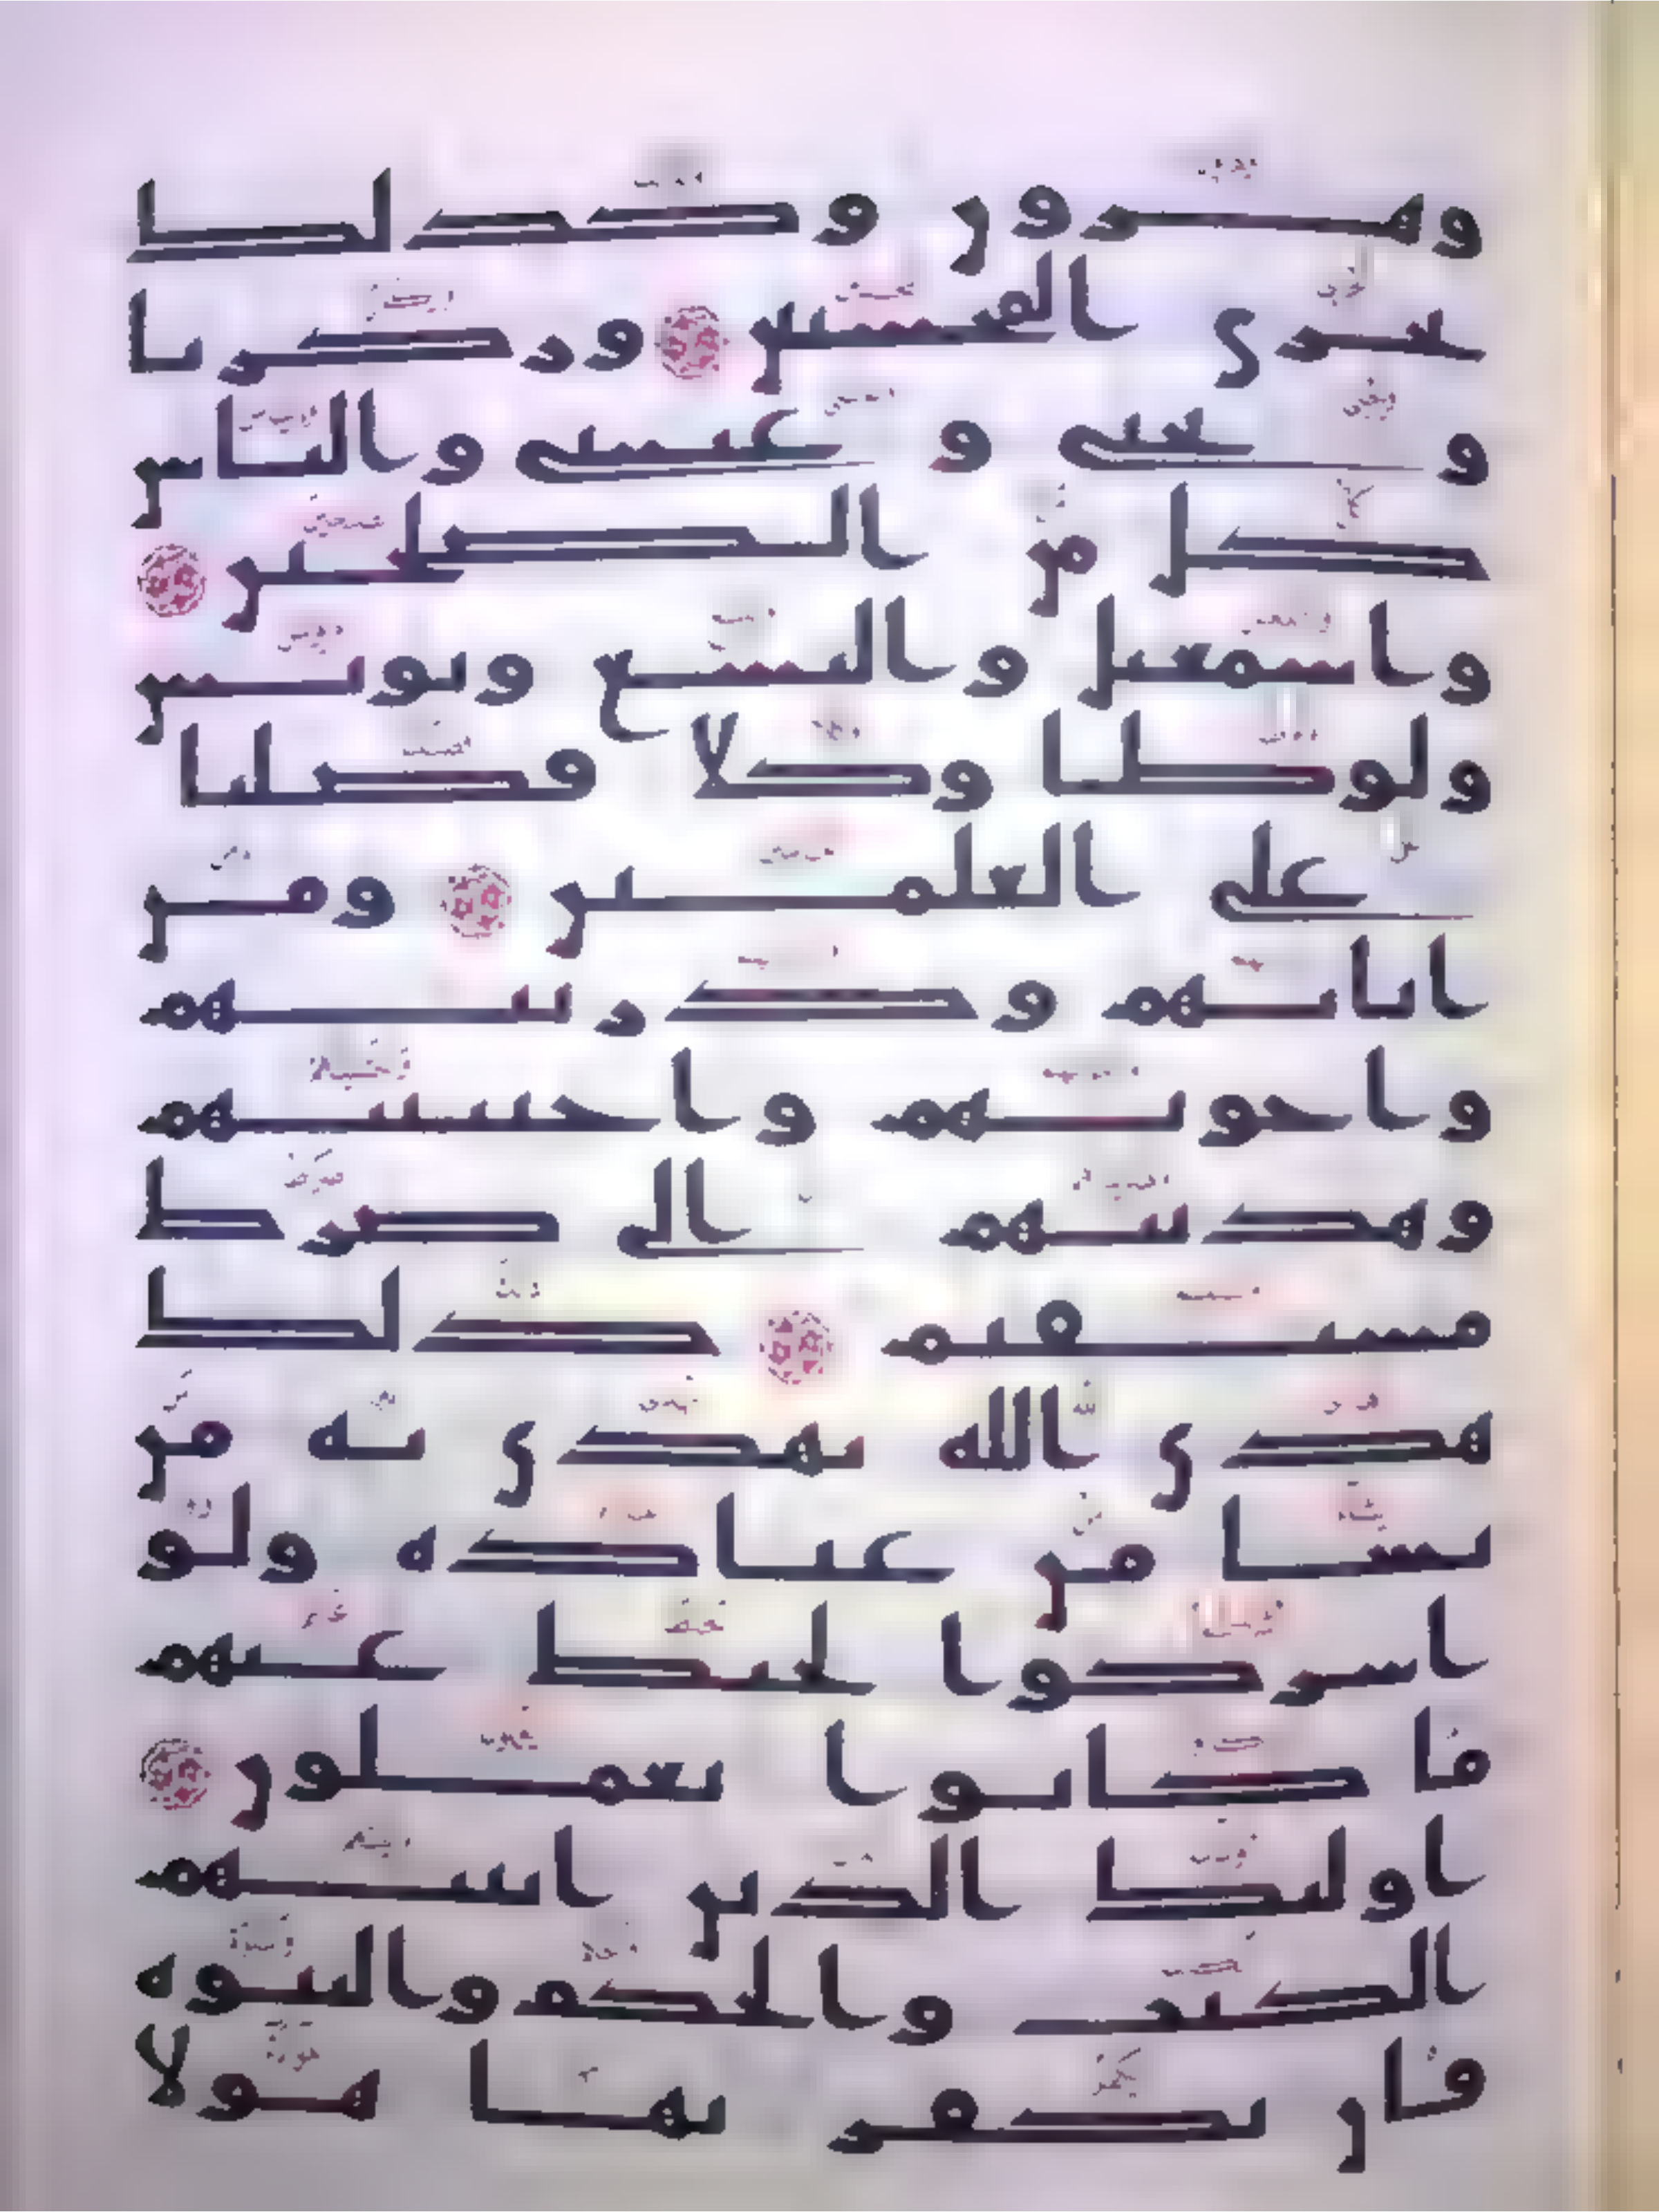 وهرون وكذلك
نجزي المحسنين وزكريا
و يحيى و عيسى والياس
كل من الصلحين
واسمعيل واليسع ويونس
ولوطا وكلا فضلنا
على العلمين ومن
ابايهم وذريتهم
واخونهم واجتبينهم
وهدينهم الى صرط
مستقيم ذلك
هدى الله يهدي به من
يشا من عباده ولو
اشركوا لحبط عنهم
ما كانوا يعملون
اوليك الذين اتينهم
الكتب والحكم والنبوه
فان يكفر بها هولا